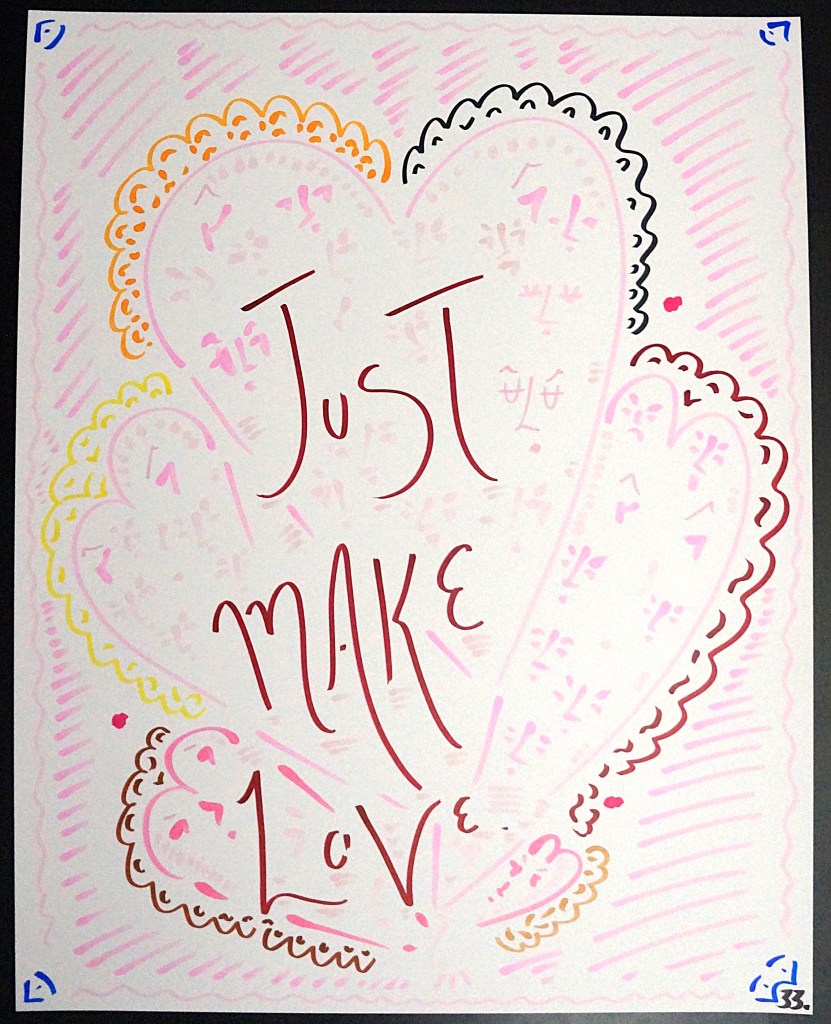 JusT
MAKE
LovE.
33.